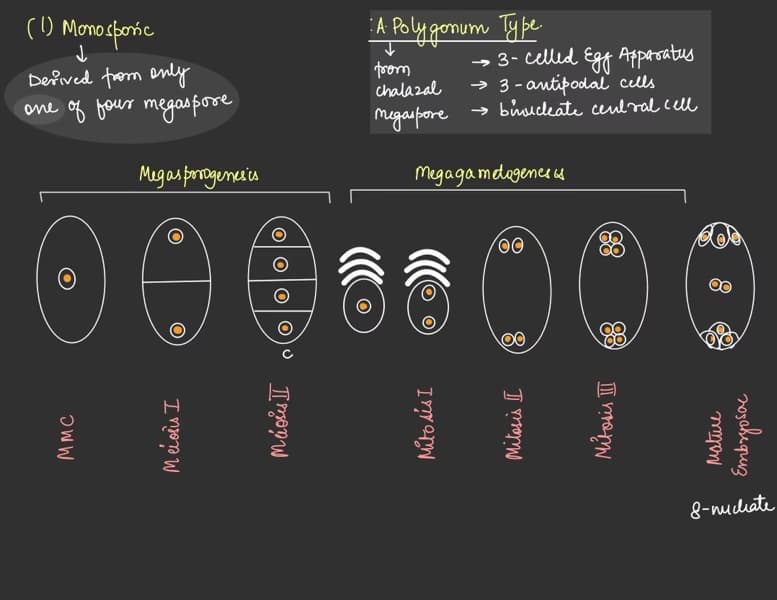 (1) Monosporic
Derived from only
one of four megaspore
:A Polygonum Type.
from
chalazal
Megaspore
→ 3-celled Egg Apparatus
→ 3-antipodal cells
→ binucleate central cell
Megasporogenesis
Megagametogenesis
C
MMC
Meiosis I
Meiosis II
Mitosis I
Mitosis II
Mitosis III
Mature
Embryosac
8-nucliate